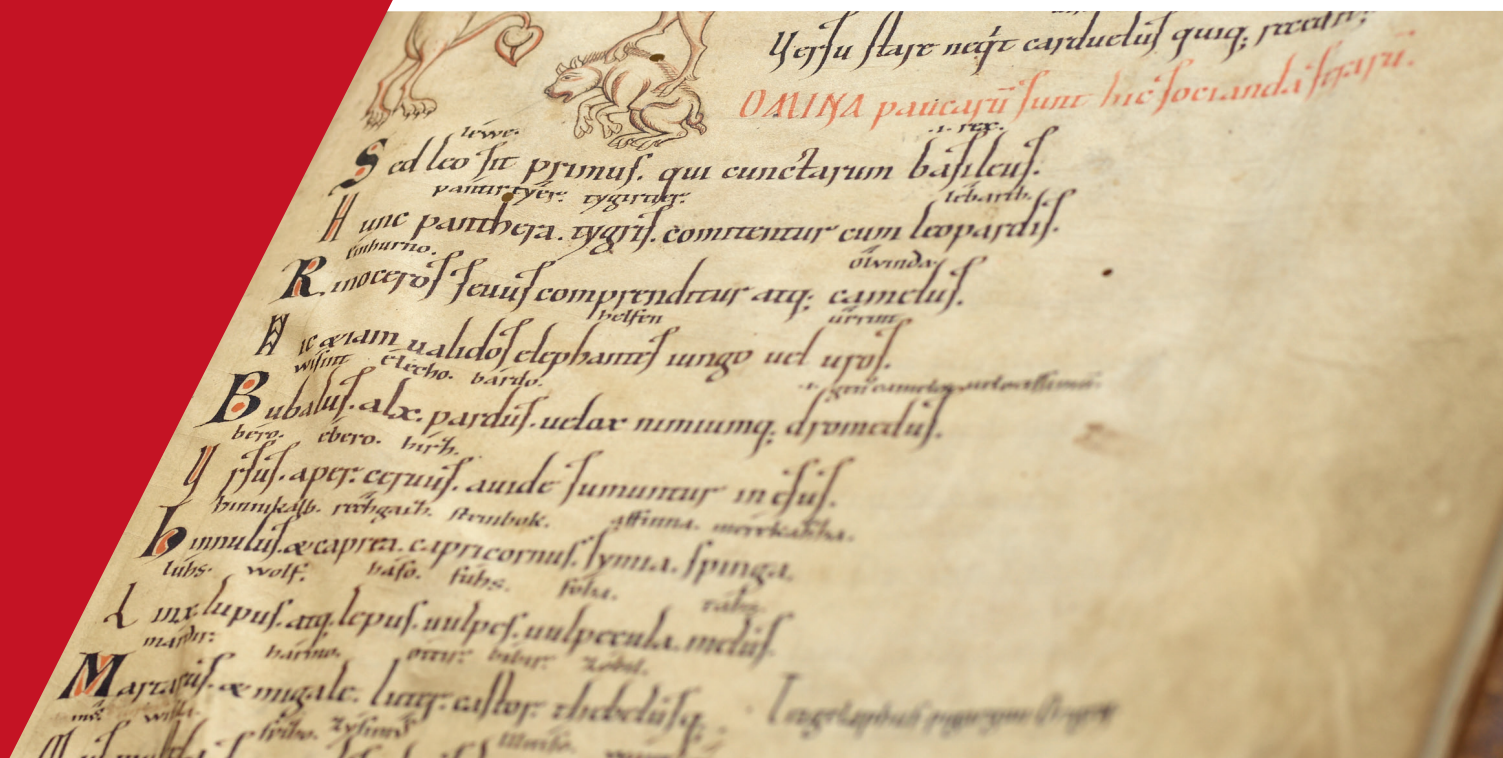 Versu stare neq̄t carduelus quiq;
OMINA paucarū sunt hic socianda ferarū.
lewe. .i. rex.
Sed leo sit primus. qui cunctarum basileus.
pantir tyer. tygirtier. lebarth.
Hunc panthera. tygris. comitentur cum leopardis.
einhurno. olvinda
Rinoceros seuus comprenditur atq; camelus.
helfen urrint
Hic æciam ualidos elephantes iungo uel uros.
wisint elecho. bardo.
Bubalus. alx. pardus. uelox nimiumq; dromedus.
bero. ebero. hirh.
Vrsus. aper. ceruus. auide sumuntur in esus.
hinnikalb. rechgaih. steinbok. affinna. merekazha.
hinnulus. & caprea. capricornus. symia. spinga.
luhs. wolf. haso. fuhs. foha.
Linx lupus. atq. lepus. uulpes. uulpecula. melus.
mardir. harmo. ottir. bibir. zobil.
Martarus. & migale. luter. castor. thebelusq;